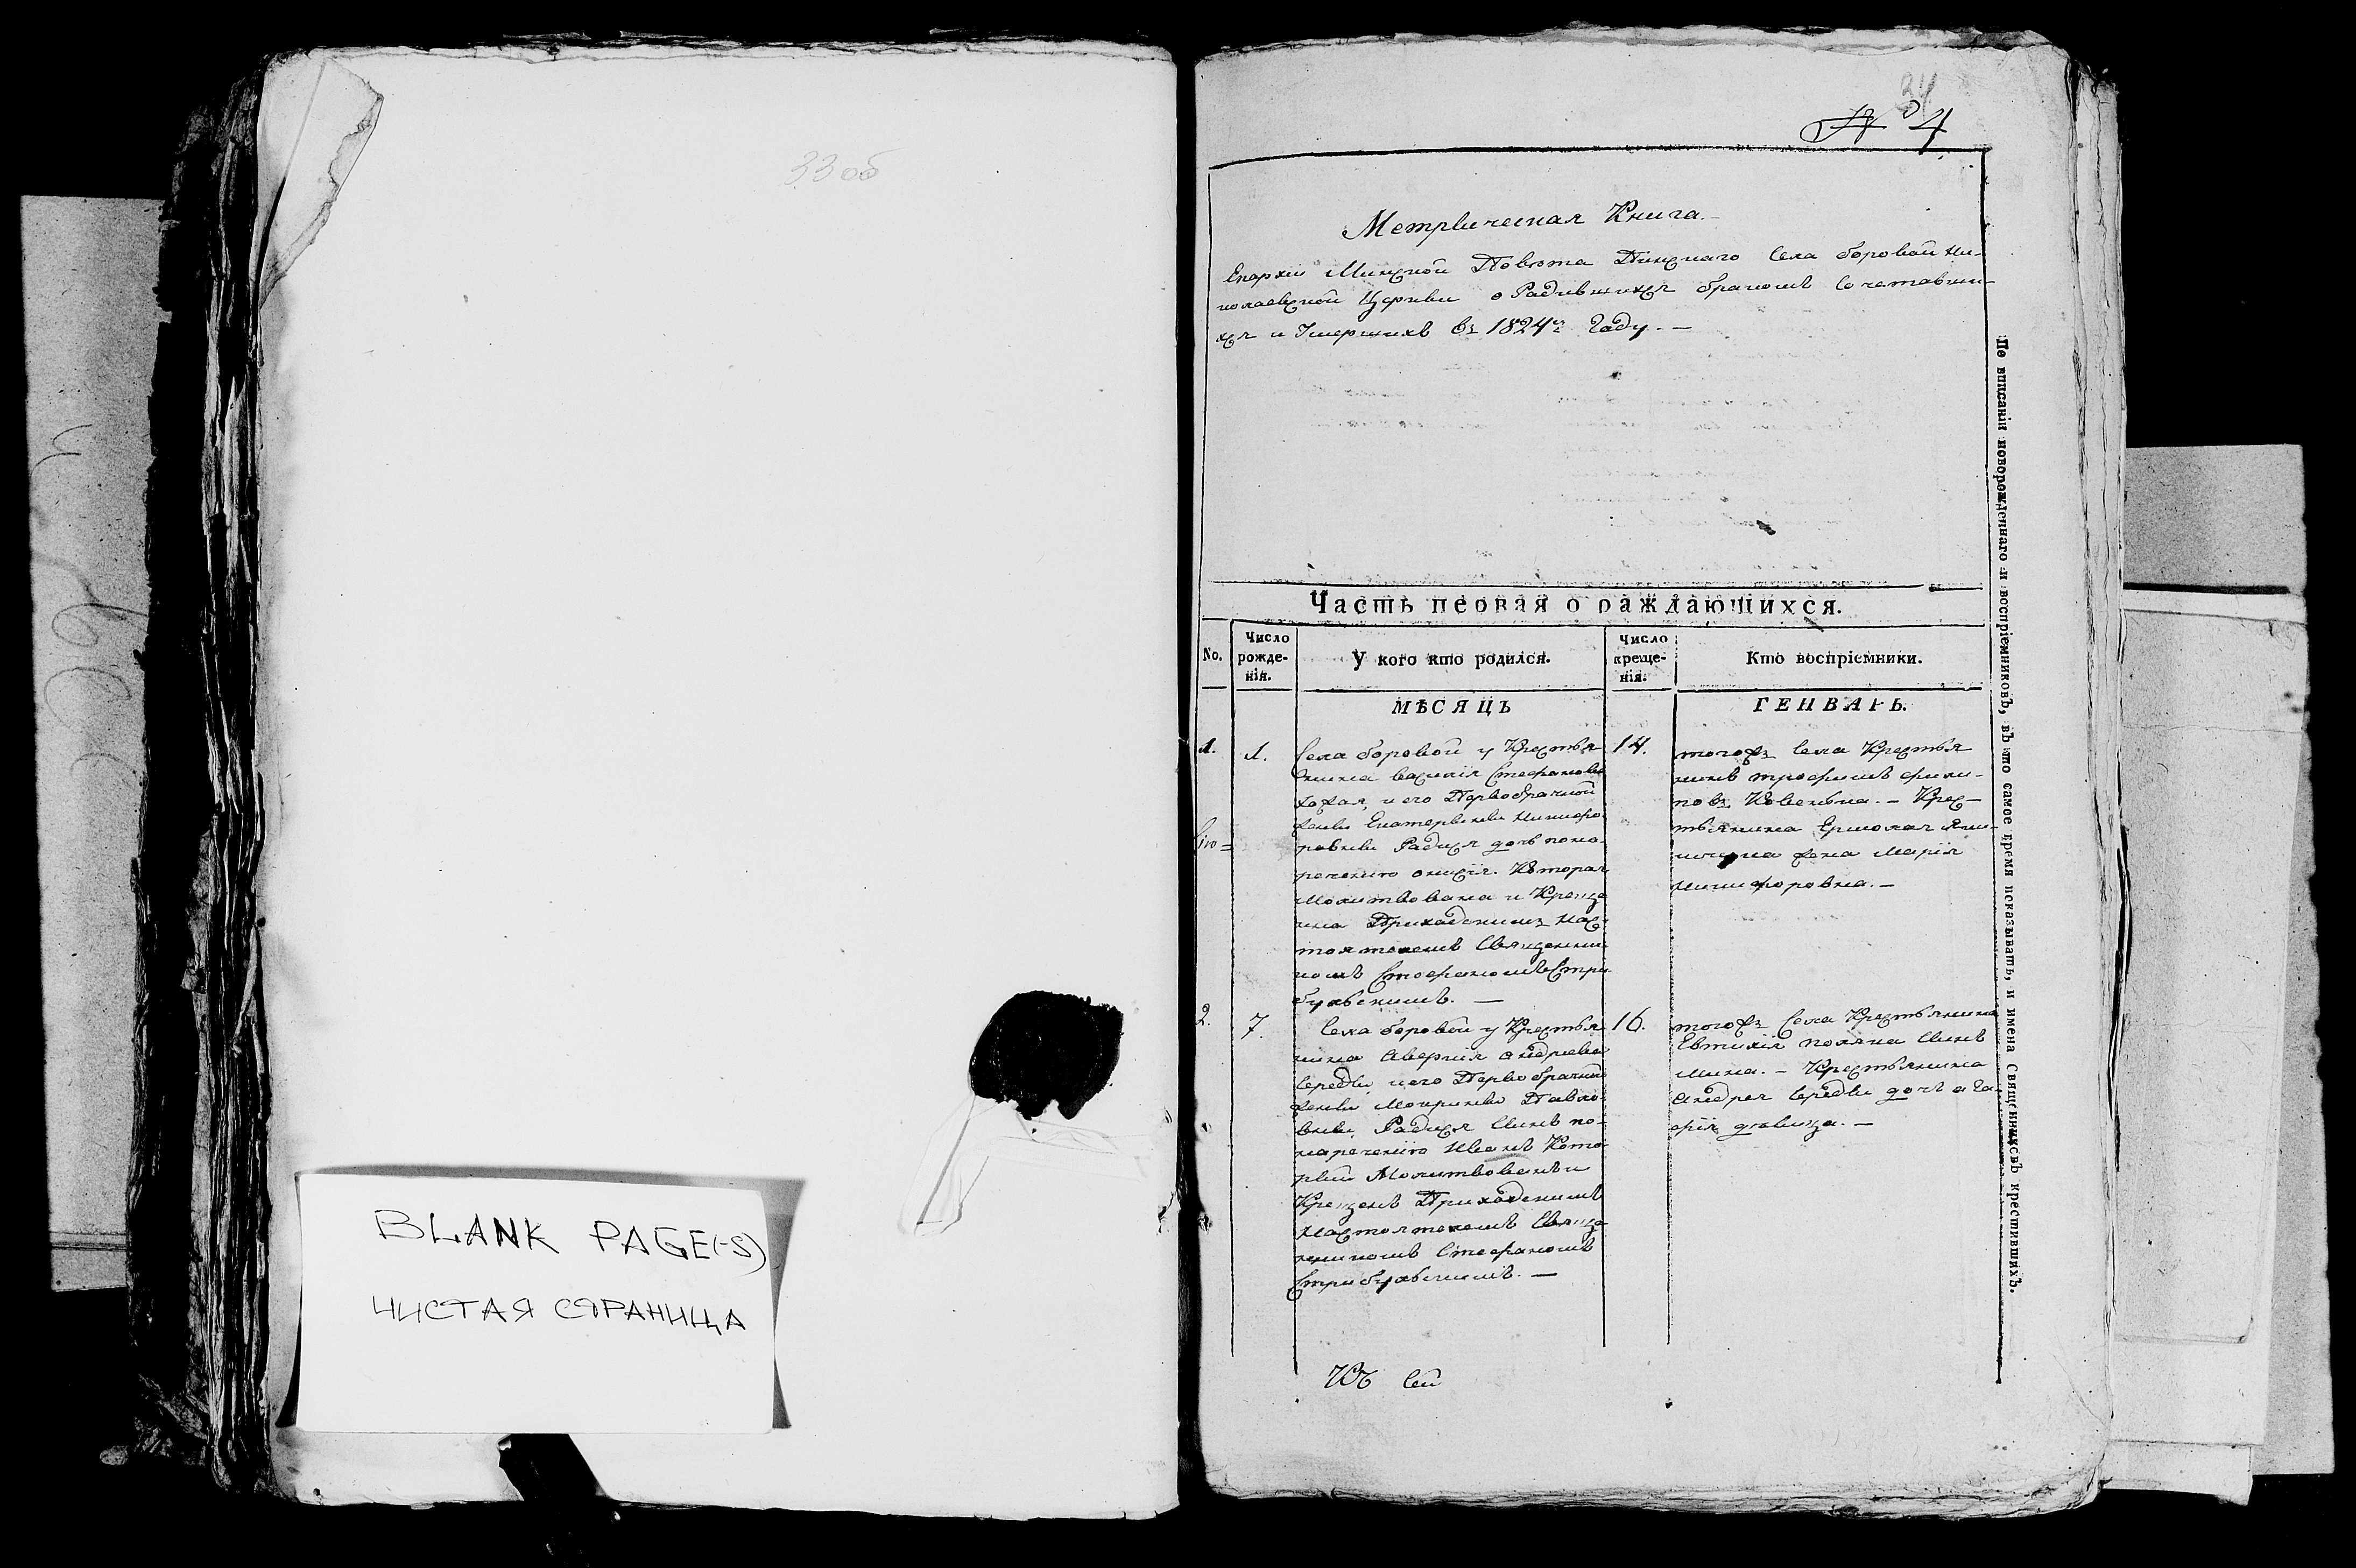 33 об
BLANK PAGE(-S)
ЧИСТАЯ СТРАНИЦА
34
№ 4
Метрическая Книга.
Епархіи Минской Повѣта Пинскаго Села боровой Ни-
колаевской Церкви о Родившихся бракомъ Сочетавши-
хся и Умершихъ въ 1824м Году. —
Часть первая о раждающихся.
No.
Число рожде-
нія.
У кого кто родился.
Число креще-
нія.
Кто воспріемники.
МѢСЯЦЪ
ГЕНВАРЬ.
1.
1.
Села боровой у Крестья
нина василія Стефанова
и его Первобрачной
жены Екатерины Никифо-
ровны Родися дочь пона-
речению онисія. Которая
Молитвована и Креще
нна Приходскимъ Нас-
тоятелемъ Священни
комъ Стефаномъ Стри
бульскимъ. —
14.
тогожъ Села Крестья
нинъ трофимъ фили-
повъ Ковенька. — Крес-
тьянина Ермолая
жена Марія
Никифоровна. —
2.
7.
Села боровой у Крестья
нина Аверкія андреева
Середы и его Первобрачной
жены Мокрины Павло-
вны Родися Сынъ по-
нареченію Иванъ Кото-
рый Молитвованъ и
Крещенъ Приходскимъ
Настоятелемъ Свяще
нникомъ Стефаномъ
Стрибульскимъ. —
16.
тогожъ Села Крестьянина
Евтихія Сынъ
Мина. — Крестьянина
андрея Середы дочь ага-
фія девица. —
Къ сей
По вписаніи новорожденнаго и воспріемниковъ, въ то самое время показывать, и имена Священниковъ крестившихъ.